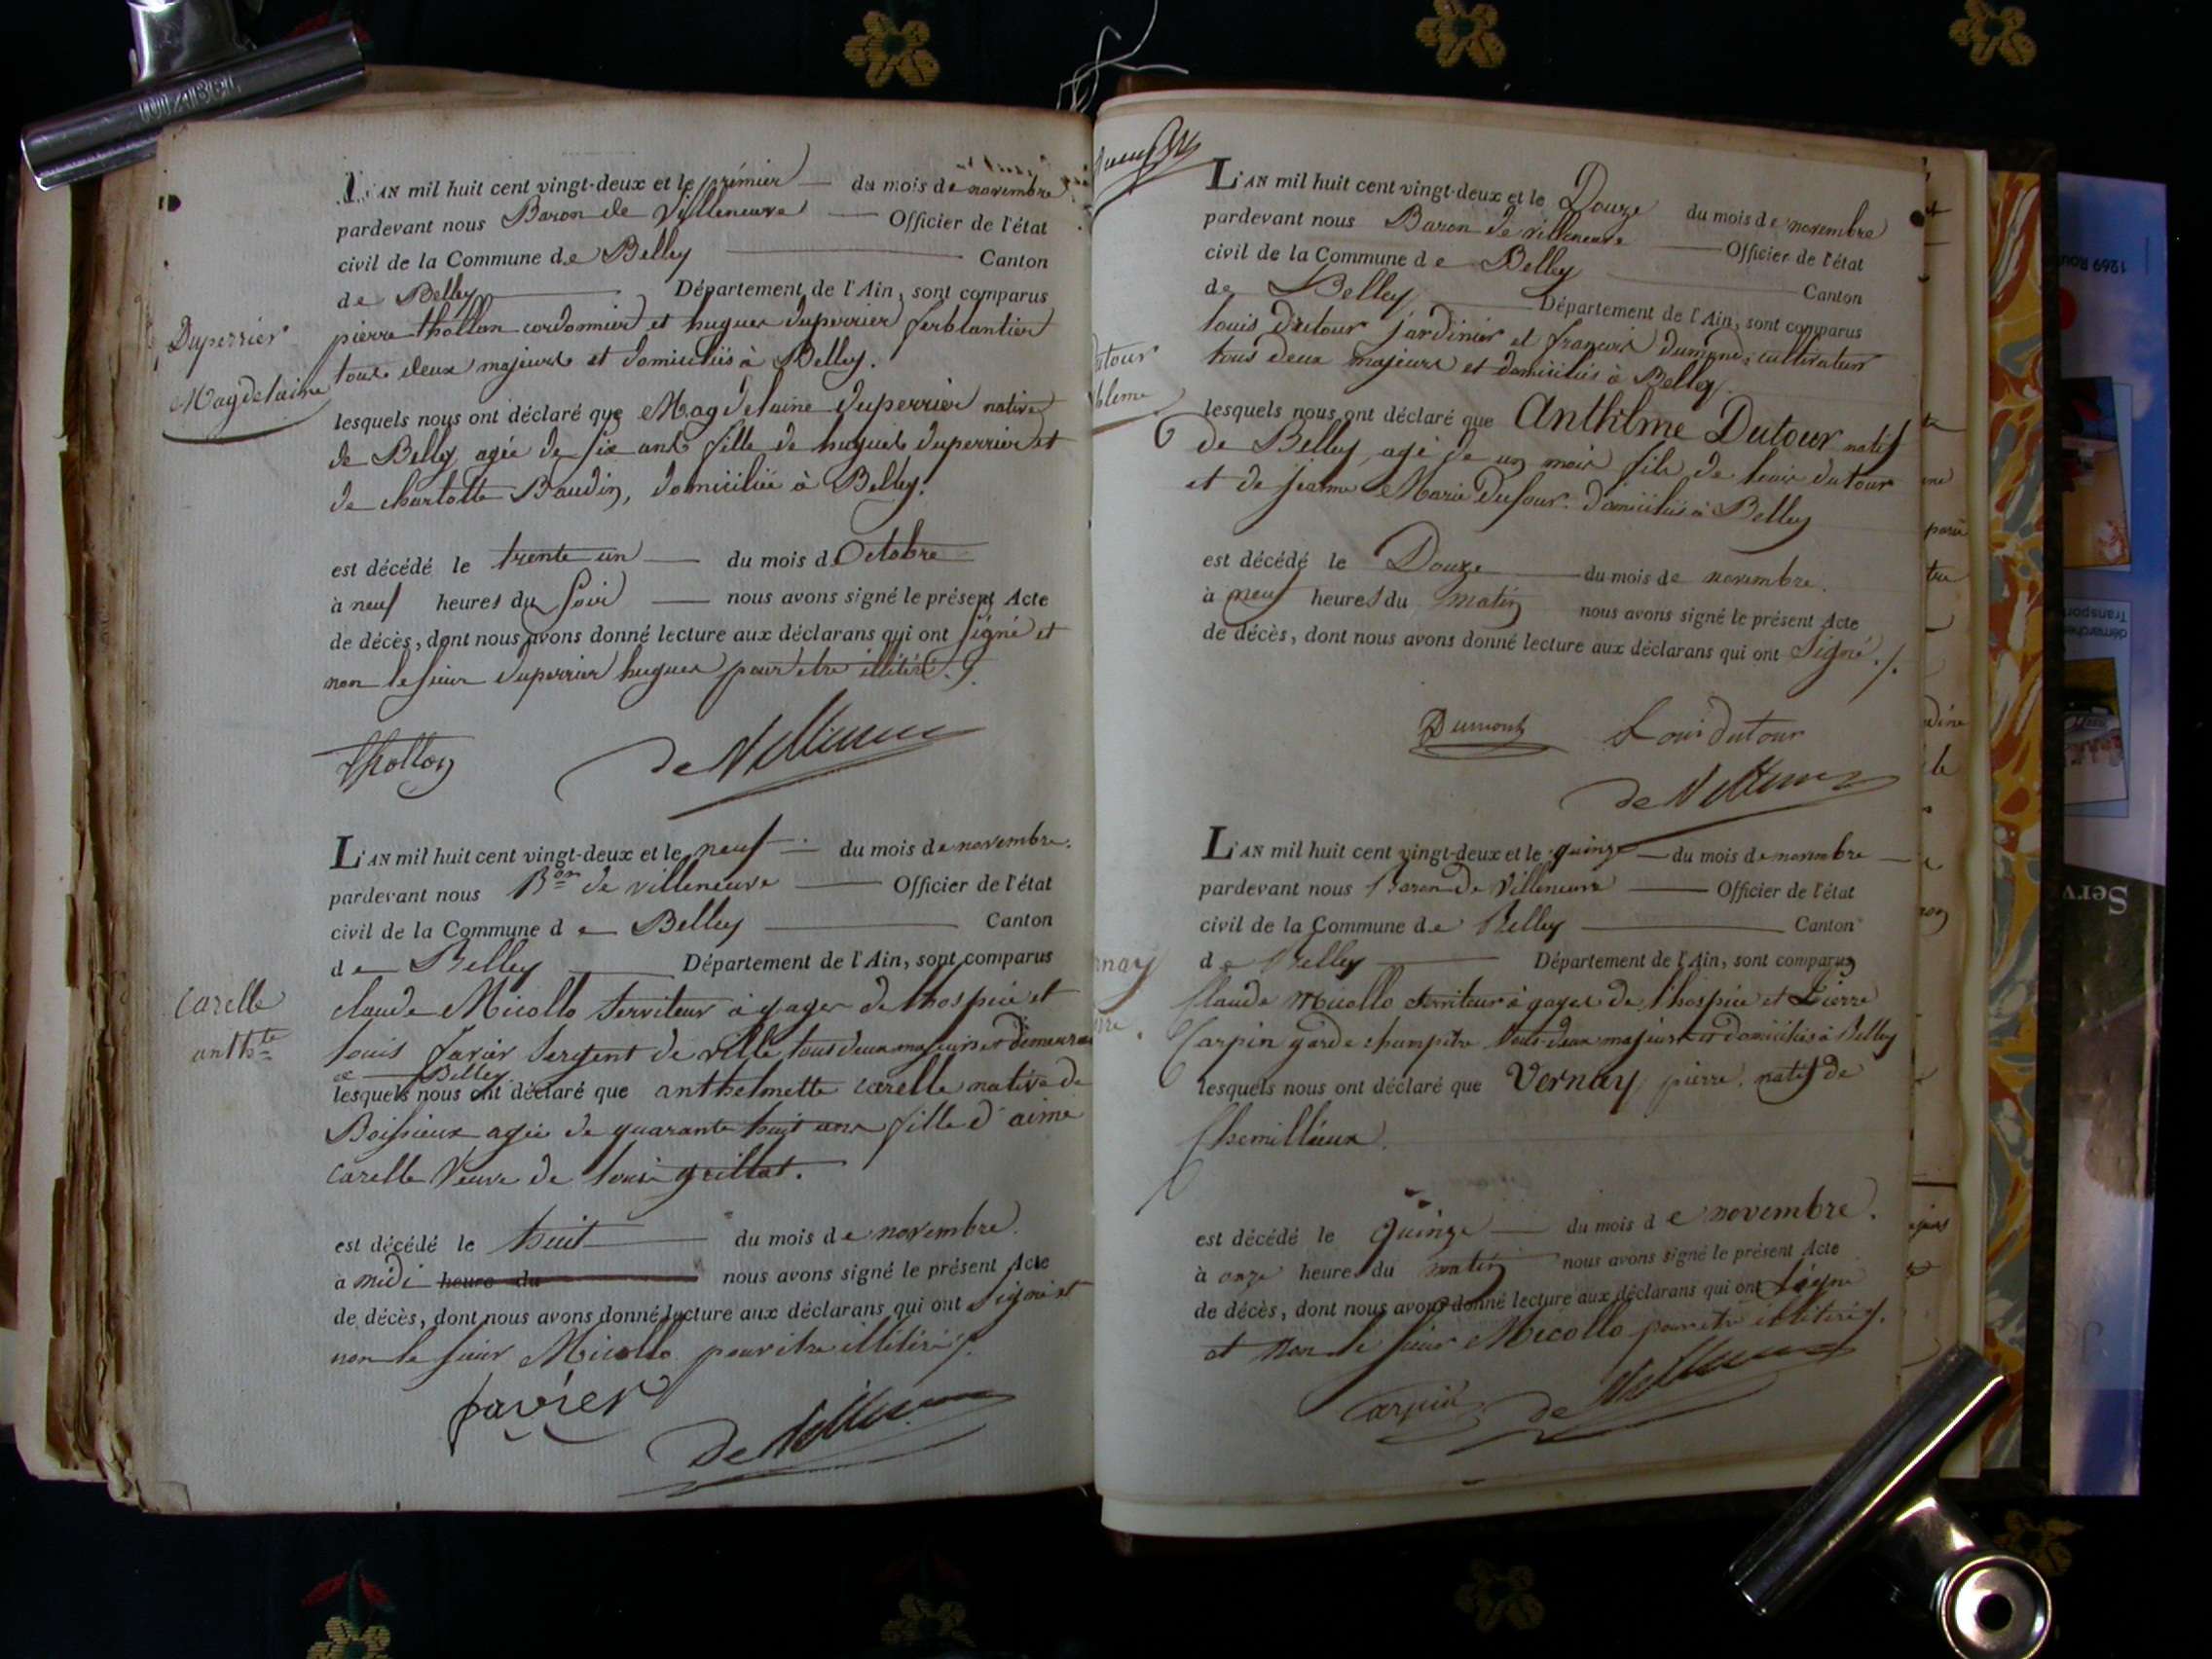 L'AN mil huit cent vingt-deux et le prémier du mois de novembre
pardevant nous Baron de Villeneuve Officier de l'état
civil de la Commune de Belley Canton
de Belley Département de l'Ain, sont comparus
pierre thollon cordonnier et hugues duperrier ferblantier
tous deux majeurs et domiciliés à Belley.
Duperrier
Magdelaine
lesquels nous ont déclaré que Magdelaine duperrier native
de Belley agée de six ans fille de hugues duperrier et
de charlotte Baudin, domiciliée à Belley.
est décédé le trente un du mois d Octobre
à neuf heures du soir nous avons signé le présent Acte
de décès, dont nous avons donné lecture aux déclarans qui ont signé et
non le sieur duperrier hugues pour etre illitéré
Thollon de Villeneuve
L'AN mil huit cent vingt-deux et le neuf du mois de novembre.
pardevant nous Bon de villeneuve Officier de l'état
civil de la Commune de Belley Canton
de Belley Département de l'Ain, sont comparus
carelle
anthte
claude Micollo serviteur à gages de l'hospice et
louis favier sergent de ville tous deux majeurs et demeurant
à Belley
lesquels nous ont déclaré que anthelmette carelle native de
Boissieux agée de quarante huit ans fille d'aime
carelle Veuve de louis grillat.
est décédé le huit du mois de novembre.
à midi heure du nous avons signé le présent Acte
de décès, dont nous avons donné lecture aux déclarans qui ont signé et
non le sieur Micollo pour etre illitéré
favier
de Villeneuve
L'AN mil huit cent vingt-deux et le Douze du mois de novembre
pardevant nous Baron de villeneuve Officier de l'état
civil de la Commune de Belley Canton
de Belley Département de l'Ain, sont comparus
louis dutour jardinier et françois dumond cultivateur
tous deux majeurs et domiciliés à Belley.
lesquels nous ont déclaré que Anthlme Dutour natif
de Belley, agé de un mois fils de louis dutour
et de jeanne Marie dufour domiciliés à Belley
est décédé le Douze du mois de novembre.
à neuf heures du matin nous avons signé le présent Acte
de décès, dont nous avons donné lecture aux déclarans qui ont signé
Dumont Louis dutour
de Villeneuve
L'AN mil huit cent vingt-deux et le quinze du mois de novembre
pardevant nous Baron de Villeneuve Officier de l'état
civil de la Commune de Belley Canton
de Belley Département de l'Ain, sont comparus
Claude Micollo serviteur à gages de l'hospice et Pierre
Carpin garde champêtre tous deux majeurs et domiciliés à Belley
lesquels nous ont déclaré que Vernay pierre natif de
Chemillieux
est décédé le quinze du mois de novembre.
à onze heure du matin nous avons signé le présent Acte
de décès, dont nous avons donné lecture aux déclarans qui ont signé
et non le sieur Micollo pour etre illitéré
Carpin de Villeneuve